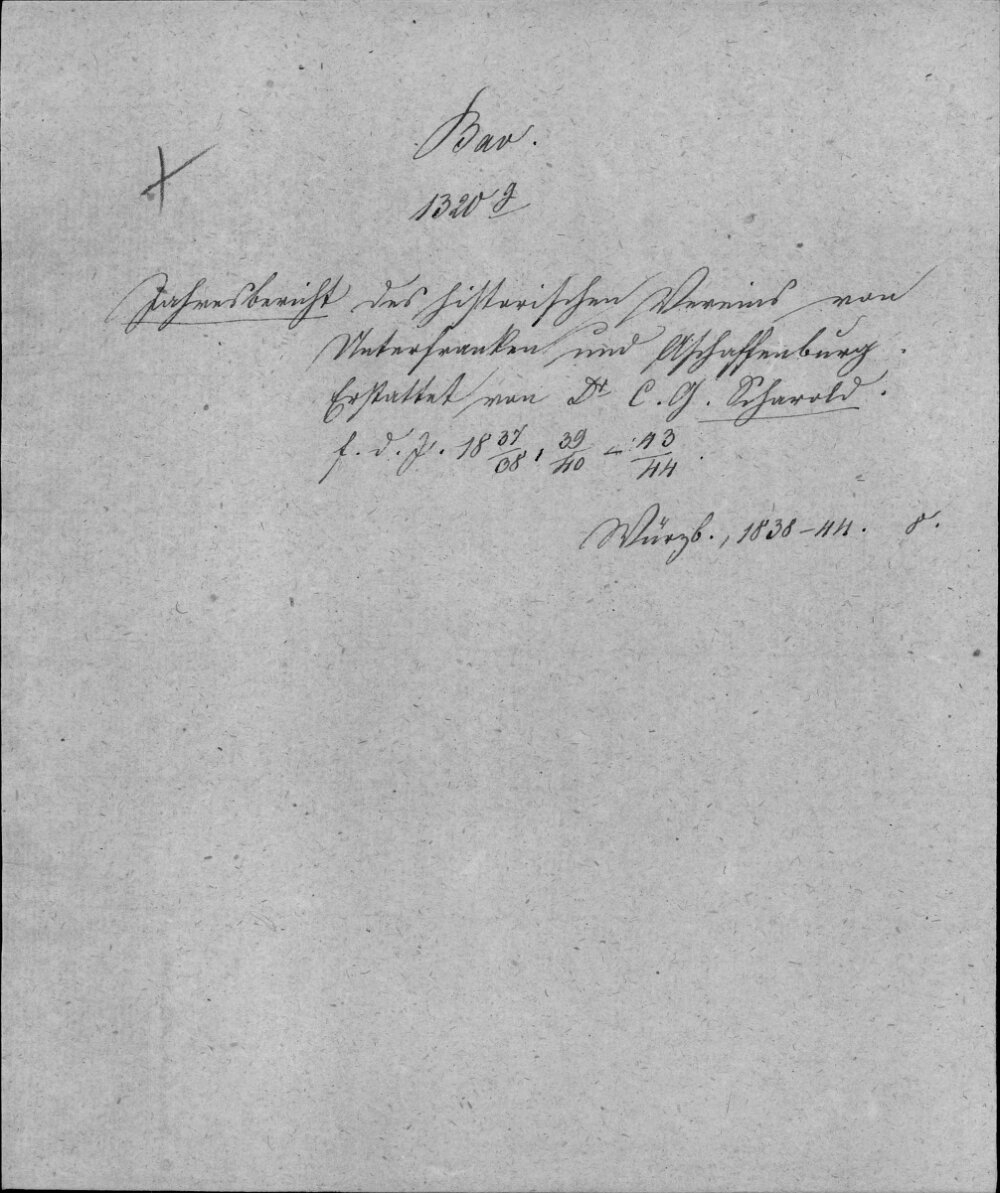 Bav.
1320 g
Jahresbericht des historischen Vereins von
Unterfranken und Aschaffenburg.
Erstattet von Dr C. G. Scharold.
f. d. J. 18 37/38, 39/40 - 43/44.
Würzb., 1838-44. 8.